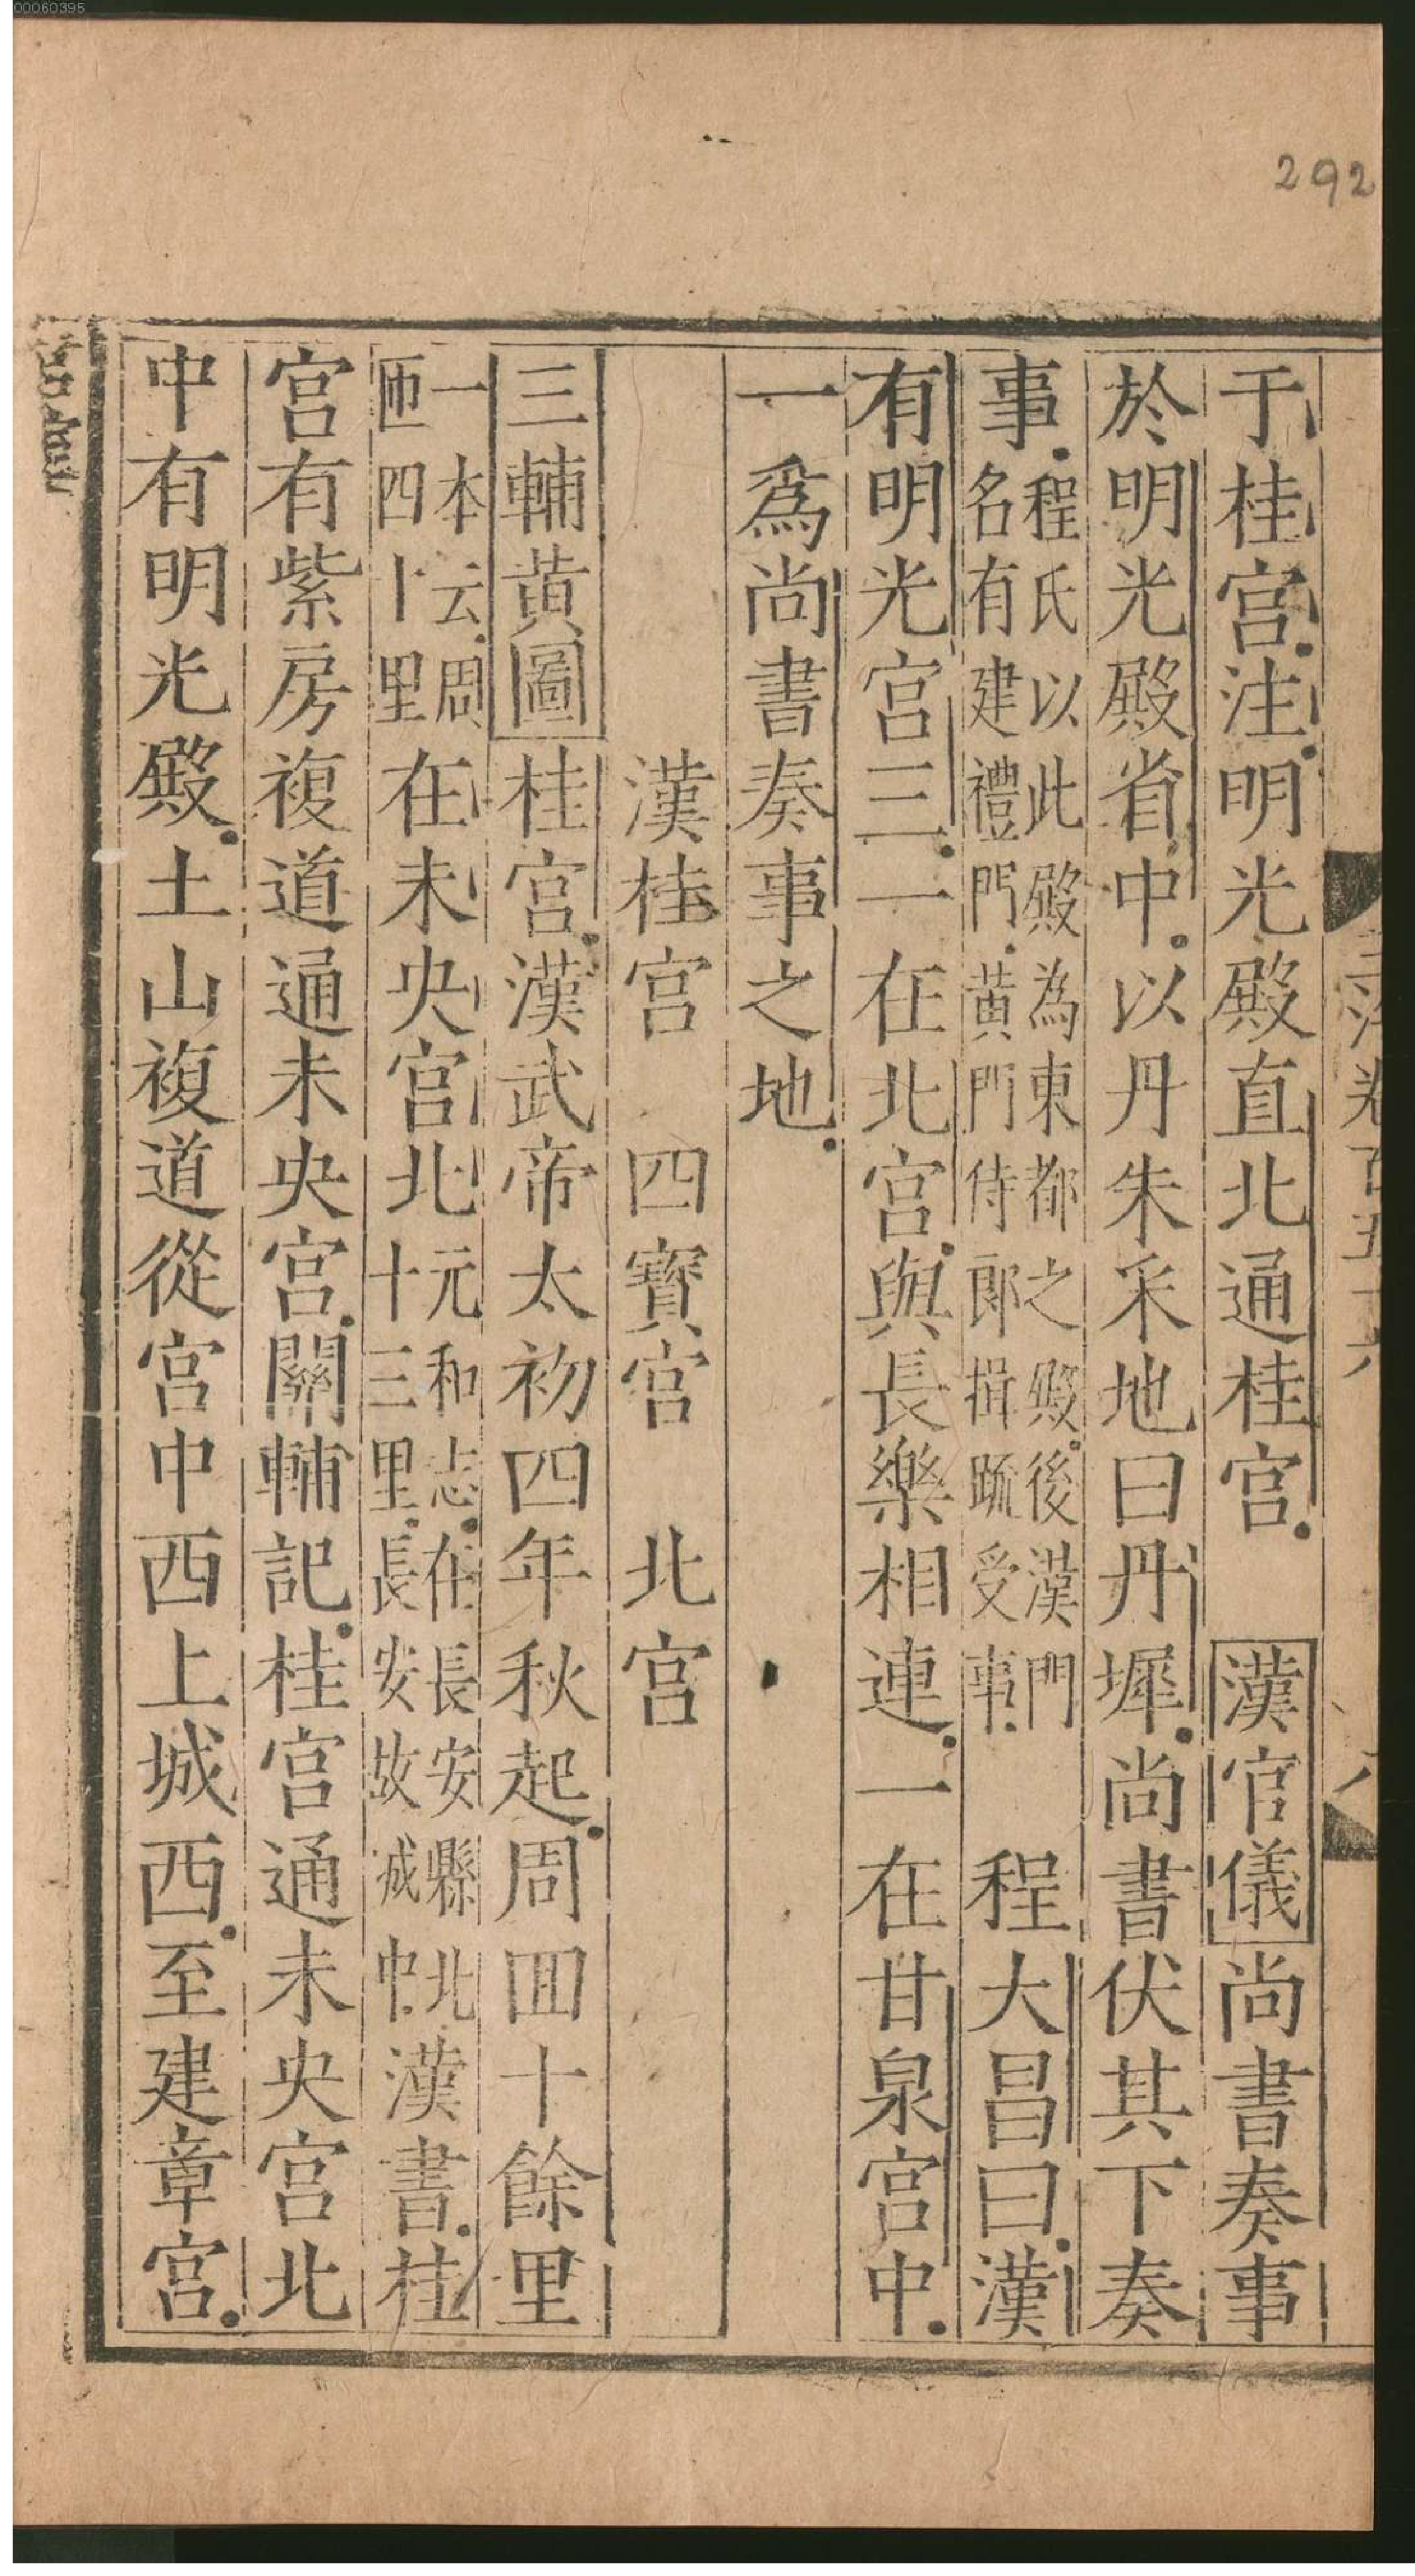 00060395
292
于桂宮注明光殿直北通桂宮　漢官儀尚書奏事
於明光殿省中以丹朱采地曰丹墀尚書伏其下奏
事程氏以此殿為東都之殿後漢門
名有建禮門黃門侍郎揖䟽受事　程大昌曰漢
有明光宮三一在北宮與長樂相連一在甘泉宮中
一爲尚書奏事之地
漢桂宮　四寳宮　北宮
三輔黃圖桂宮漢武帝太初四年秋起周回十餘里
一本云周
匝四十里在未央宮北元和志在長安縣北
十三里長安故城中漢書桂
宮有紫房複道通未央宮關輔記桂宮通未央宮北
中有明光殿土山複道從宮中西上城西至建章宮